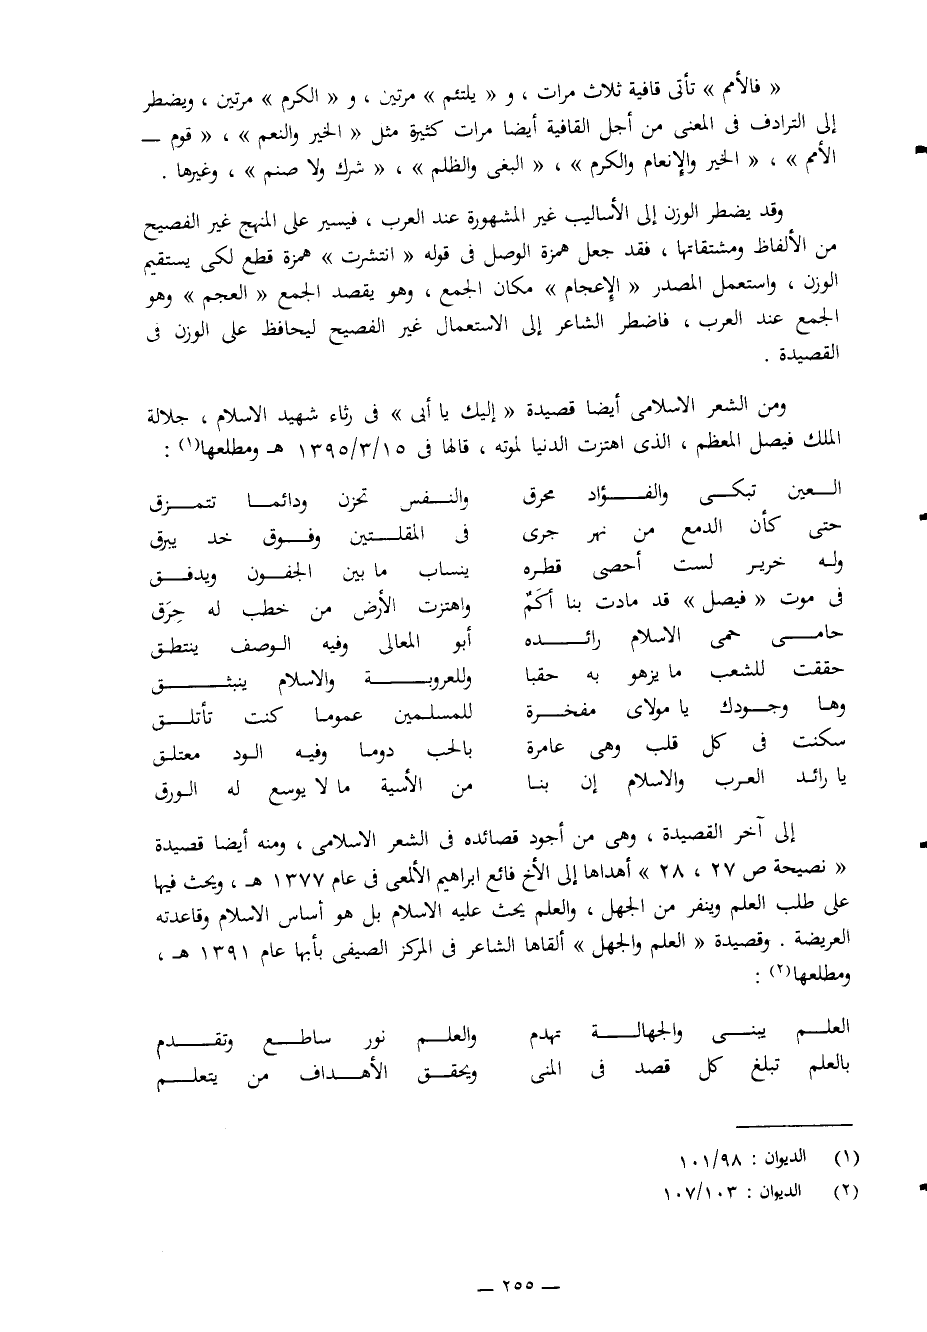 « فالأمم » تأتى قافية ثلاث مرات ، و « يلتئم » مرتين ، و « الكرم » مرتين ، ويضطر
إلى الترادف فى المعنى من أجل القافية أيضا مرات كثيرة مثل « الخير والنعم » ، « قوم ــ
الأمم » ، « الخير والإنعام والكرم » ، « البغى والظلم » ، « شرك ولا صنم » ، وغيرها .
وقد يضطر الوزن إلى الأساليب غير المشهورة عند العرب ، فيسير على المنهج غير الفصيح
من الألفاظ ومشتقاتها ، فقد جعل همزة الوصل فى قوله « انتشرت » همزة قطع لكى يستقيم
الوزن ، واستعمل المصدر « الإعجام » مكان الجمع ، وهو يقصد الجمع « العجم » وهو
الجمع عند العرب ، فاضطر الشاعر إلى الاستعمال غير الفصيح ليحافظ على الوزن فى
القصيدة .
ومن الشعر الاسلامى أيضا قصيدة « إليك يا أبى » فى رثاء شهيد الاسلام ، جلالة
الملك فيصل المعظم ، الذى اهتزت الدنيا لموته ، قالها فى ١٣٩٥/٣/١٥ هـ ومطلعها(١) :
العين تبكى والفؤاد محرق والنفس تحزن ودائما تتمزق
حتى كأن الدمع من نهر جرى فى المقلتين وفوق خد يبرق
وله خرير لست أحصى قطره ينساب ما بين الجفون ويدفق
فى موت « فيصل » قد مادت بنا أكمٌ واهتزت الأرض من خطب له حِرَق
حامى حمى الاسلام رائده أبو المعالى وفيه الوصف ينتطق
حققت للشعب ما يزهو به حقبا وللعروبة والاسلام ينبثق
وها وجودك يا مولاى مفخرة للمسلمين عموما كنت تأتلق
سكنت فى كل قلب وهى عامرة بالحب دوما وفيه الود معتلق
يا رائد العرب والاسلام إن بنا من الأسية ما لا يوسع له الورق
إلى آخر القصيدة ، وهى من أجود قصائده فى الشعر الاسلامى ، ومنه أيضا قصيدة
« نصيحة ص ٢٧ ، ٢٨ » أهداها إلى الأخ فائع ابراهيم الألمعى فى عام ١٣٧٧ هـ ، ويحث فيها
على طلب العلم وينفر من الجهل ، والعلم يحث عليه الاسلام بل هو أساس الاسلام وقاعدته
العريضة . وقصيدة « العلم والجهل » ألقاها الشاعر فى المركز الصيفى بأبها عام ١٣٩١ هـ ،
ومطلعها(٢) :
العلم يبنى والجهالة تهدم والعلم نور ساطع وتقدم
بالعلم تبلغ كل قصد فى المنى ويحقق الأهداف من يتعلم
(١) الديوان : ١٠١/٩٨
(٢) الديوان : ١٠٧/١٠٣
ــ ٢٥٥ ــ